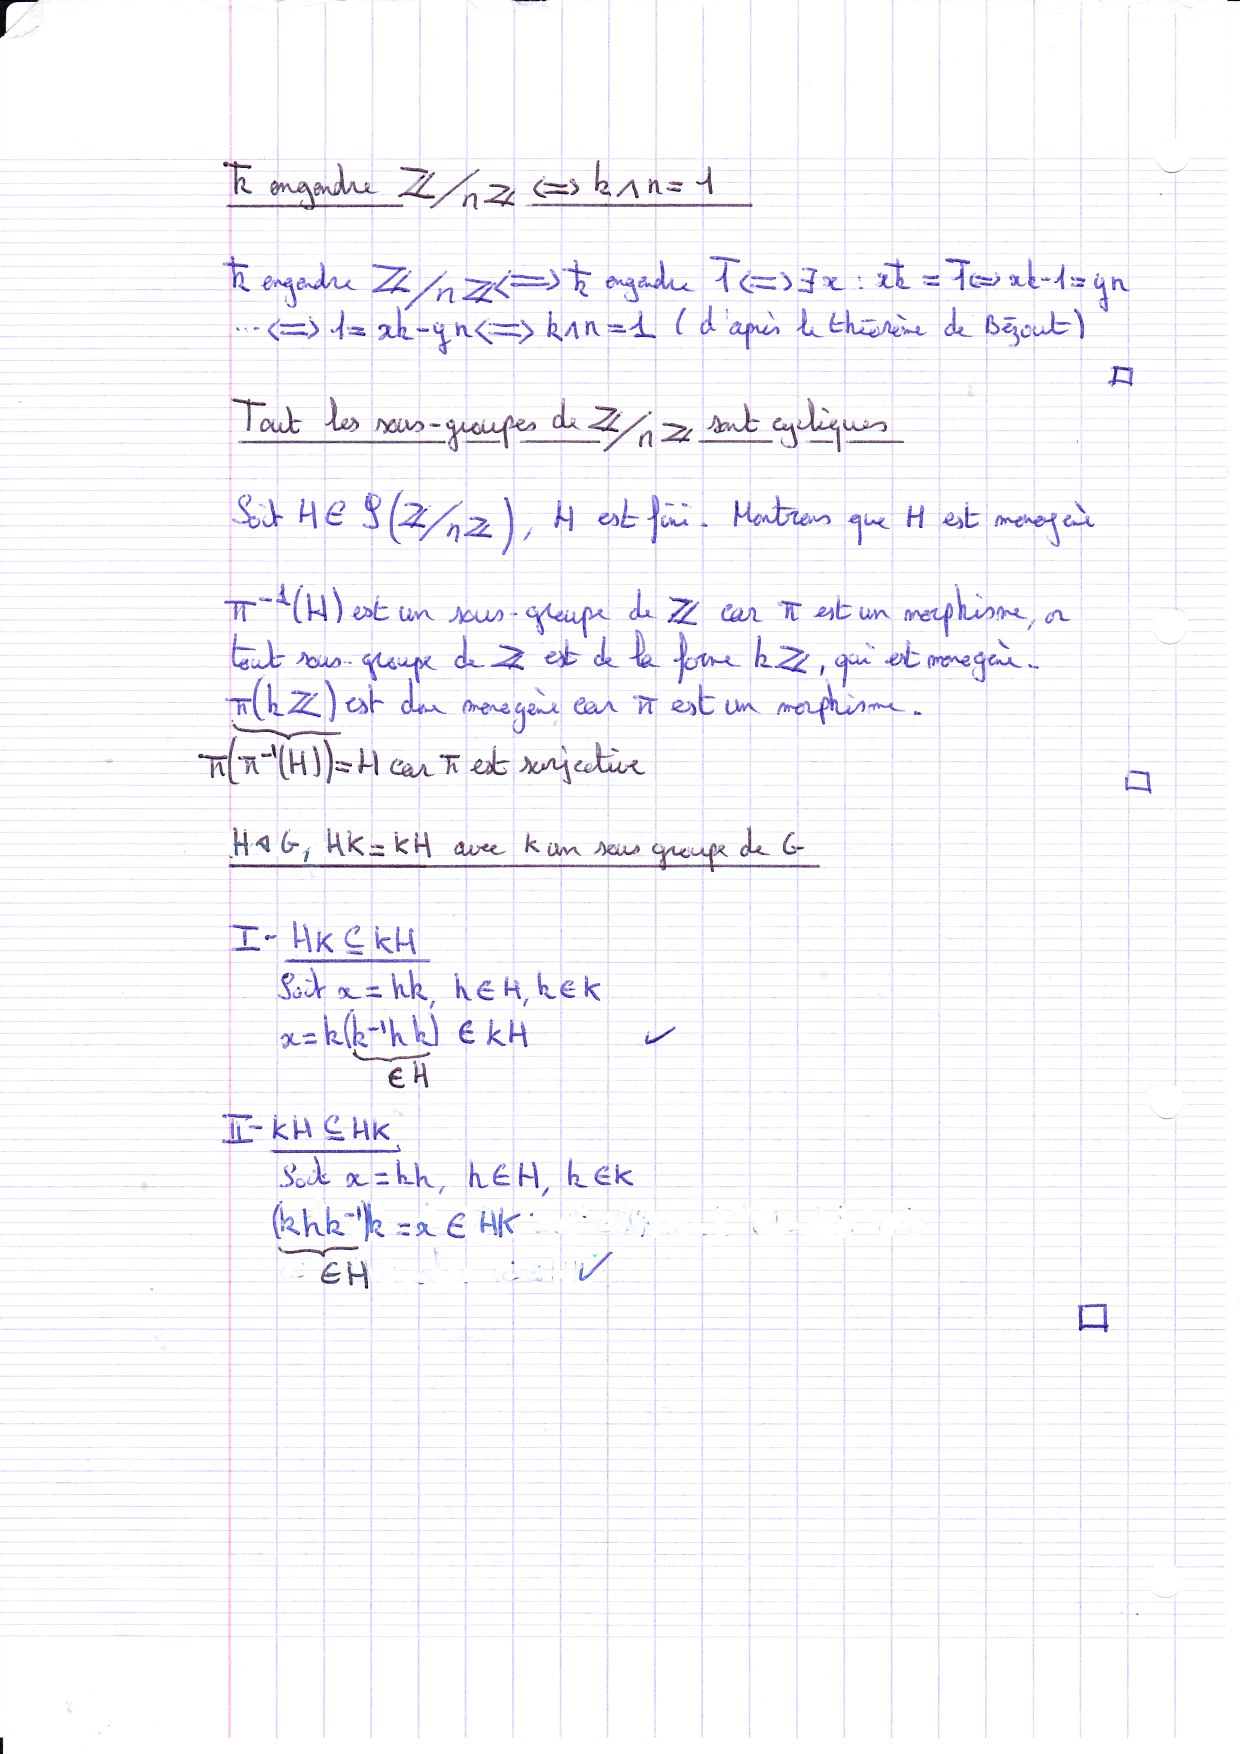 k̄ engendre ℤ/nℤ ⟺ k∧n = 1
k̄ engendre ℤ/nℤ ⟺ k̄ engendre 1̄ ⟺ ∃x : xk̄ = 1̄ ⟺ xk-1 = yn
... ⟺ 1 = xk - yn ⟺ k∧n = 1 (d'après le théorème de Bézout)
□
Tout les sous-groupes de ℤ/nℤ sont cycliques
Soit H ∈ 𝒮(ℤ/nℤ), H est fini. Montrons que H est monogène
π⁻¹(H) est un sous-groupe de ℤ car π est un morphisme, or
tout sous-groupe de ℤ est de la forme kℤ, qui est monogène.
π(kℤ) est donc monogène car π est un morphisme.
π(π⁻¹(H)) = H car π est surjective
□
H ◁ G, HK = KH avec K un sous groupe de G
I - HK ⊆ KH
Soit x = hk, h ∈ H, k ∈ K
x = k(k⁻¹hk) ∈ KH ✓
∈ H
II - KH ⊆ HK
Soit x = kh, h ∈ H, k ∈ K
(khk⁻¹)k = x ∈ HK
∈ H ✓
□